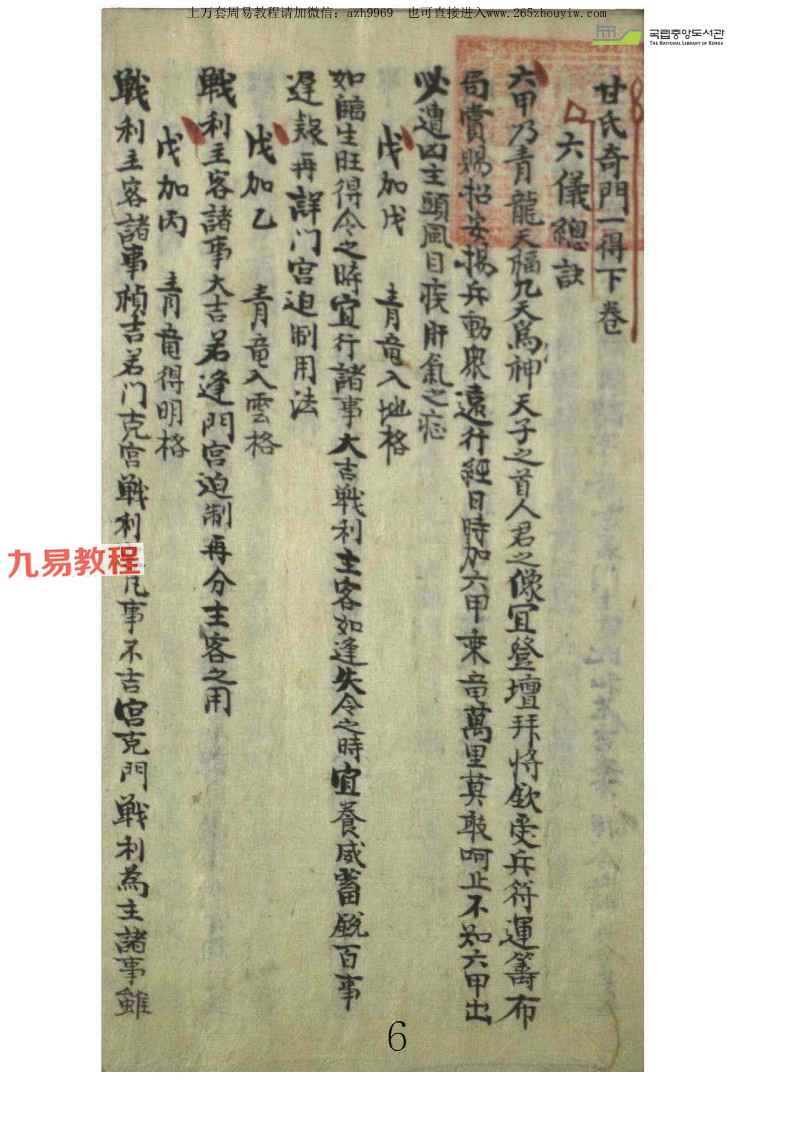 上万套周易教程请加微信：azh9969　也可直接进入www.265zhouyiw.com
국립중앙도서관
THE NATIONAL LIBRARY OF KOREA
甘氏奇門一得下卷
六儀總訣
六甲乃青龍天福九天為神天子之首人君之像宜登壇拜將欽受兵符運籌布
局賞賜招安揚兵動衆遠行經日時加六甲乘竜萬里莫敢呵止不知六甲出
必遭凶主頭風目疾肝氣之症
戊加戊　青竜入地格
如臨生旺得令之時宜行諸事大吉戰利主客如逢失令之時宜養威蓄銳百事
遲疑再詳门宮迫制用法
戊加乙　青竜入雲格
戰利主客諸事大吉若逢門宮迫制再分主客之用
戊加丙　青竜得明格
戰利主客諸事楨吉若门克宮戰利凡事不吉宮克門戰利為主諸事雖
九易教程
6